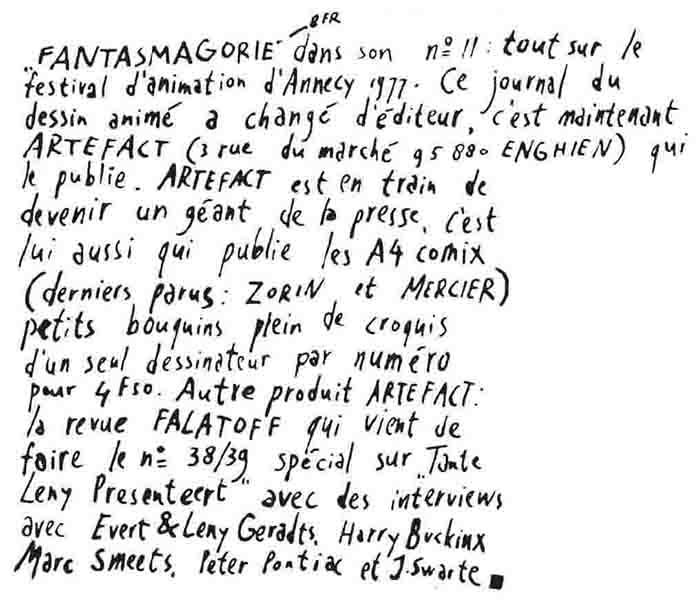 8 FR
„FANTASMAGORIE" dans son nº 11 : tout sur le
festival d'animation d'Annecy 1977. Ce journal du
dessin animé a changé d'éditeur, c'est maintenant
ARTEFACT (3 rue du marché 95880 ENGHIEN) qui
le publie. ARTEFACT est en train de
devenir un géant de la presse, c'est
lui aussi qui publie les A4 comix
(derniers parus : ZORIN et MERCIER)
petits bouquins plein de croquis
d'un seul dessinateur par numéro
pour 4F50. Autre produit ARTEFACT :
la revue FALATOFF qui vient de
faire le nº 38/39 spécial sur „Tante
Leny Presenteert" avec des interviews
avec Evert & Leny Geradts, Harry Buckinx
Marc Smeets, Peter Pontiac et J. Swarte